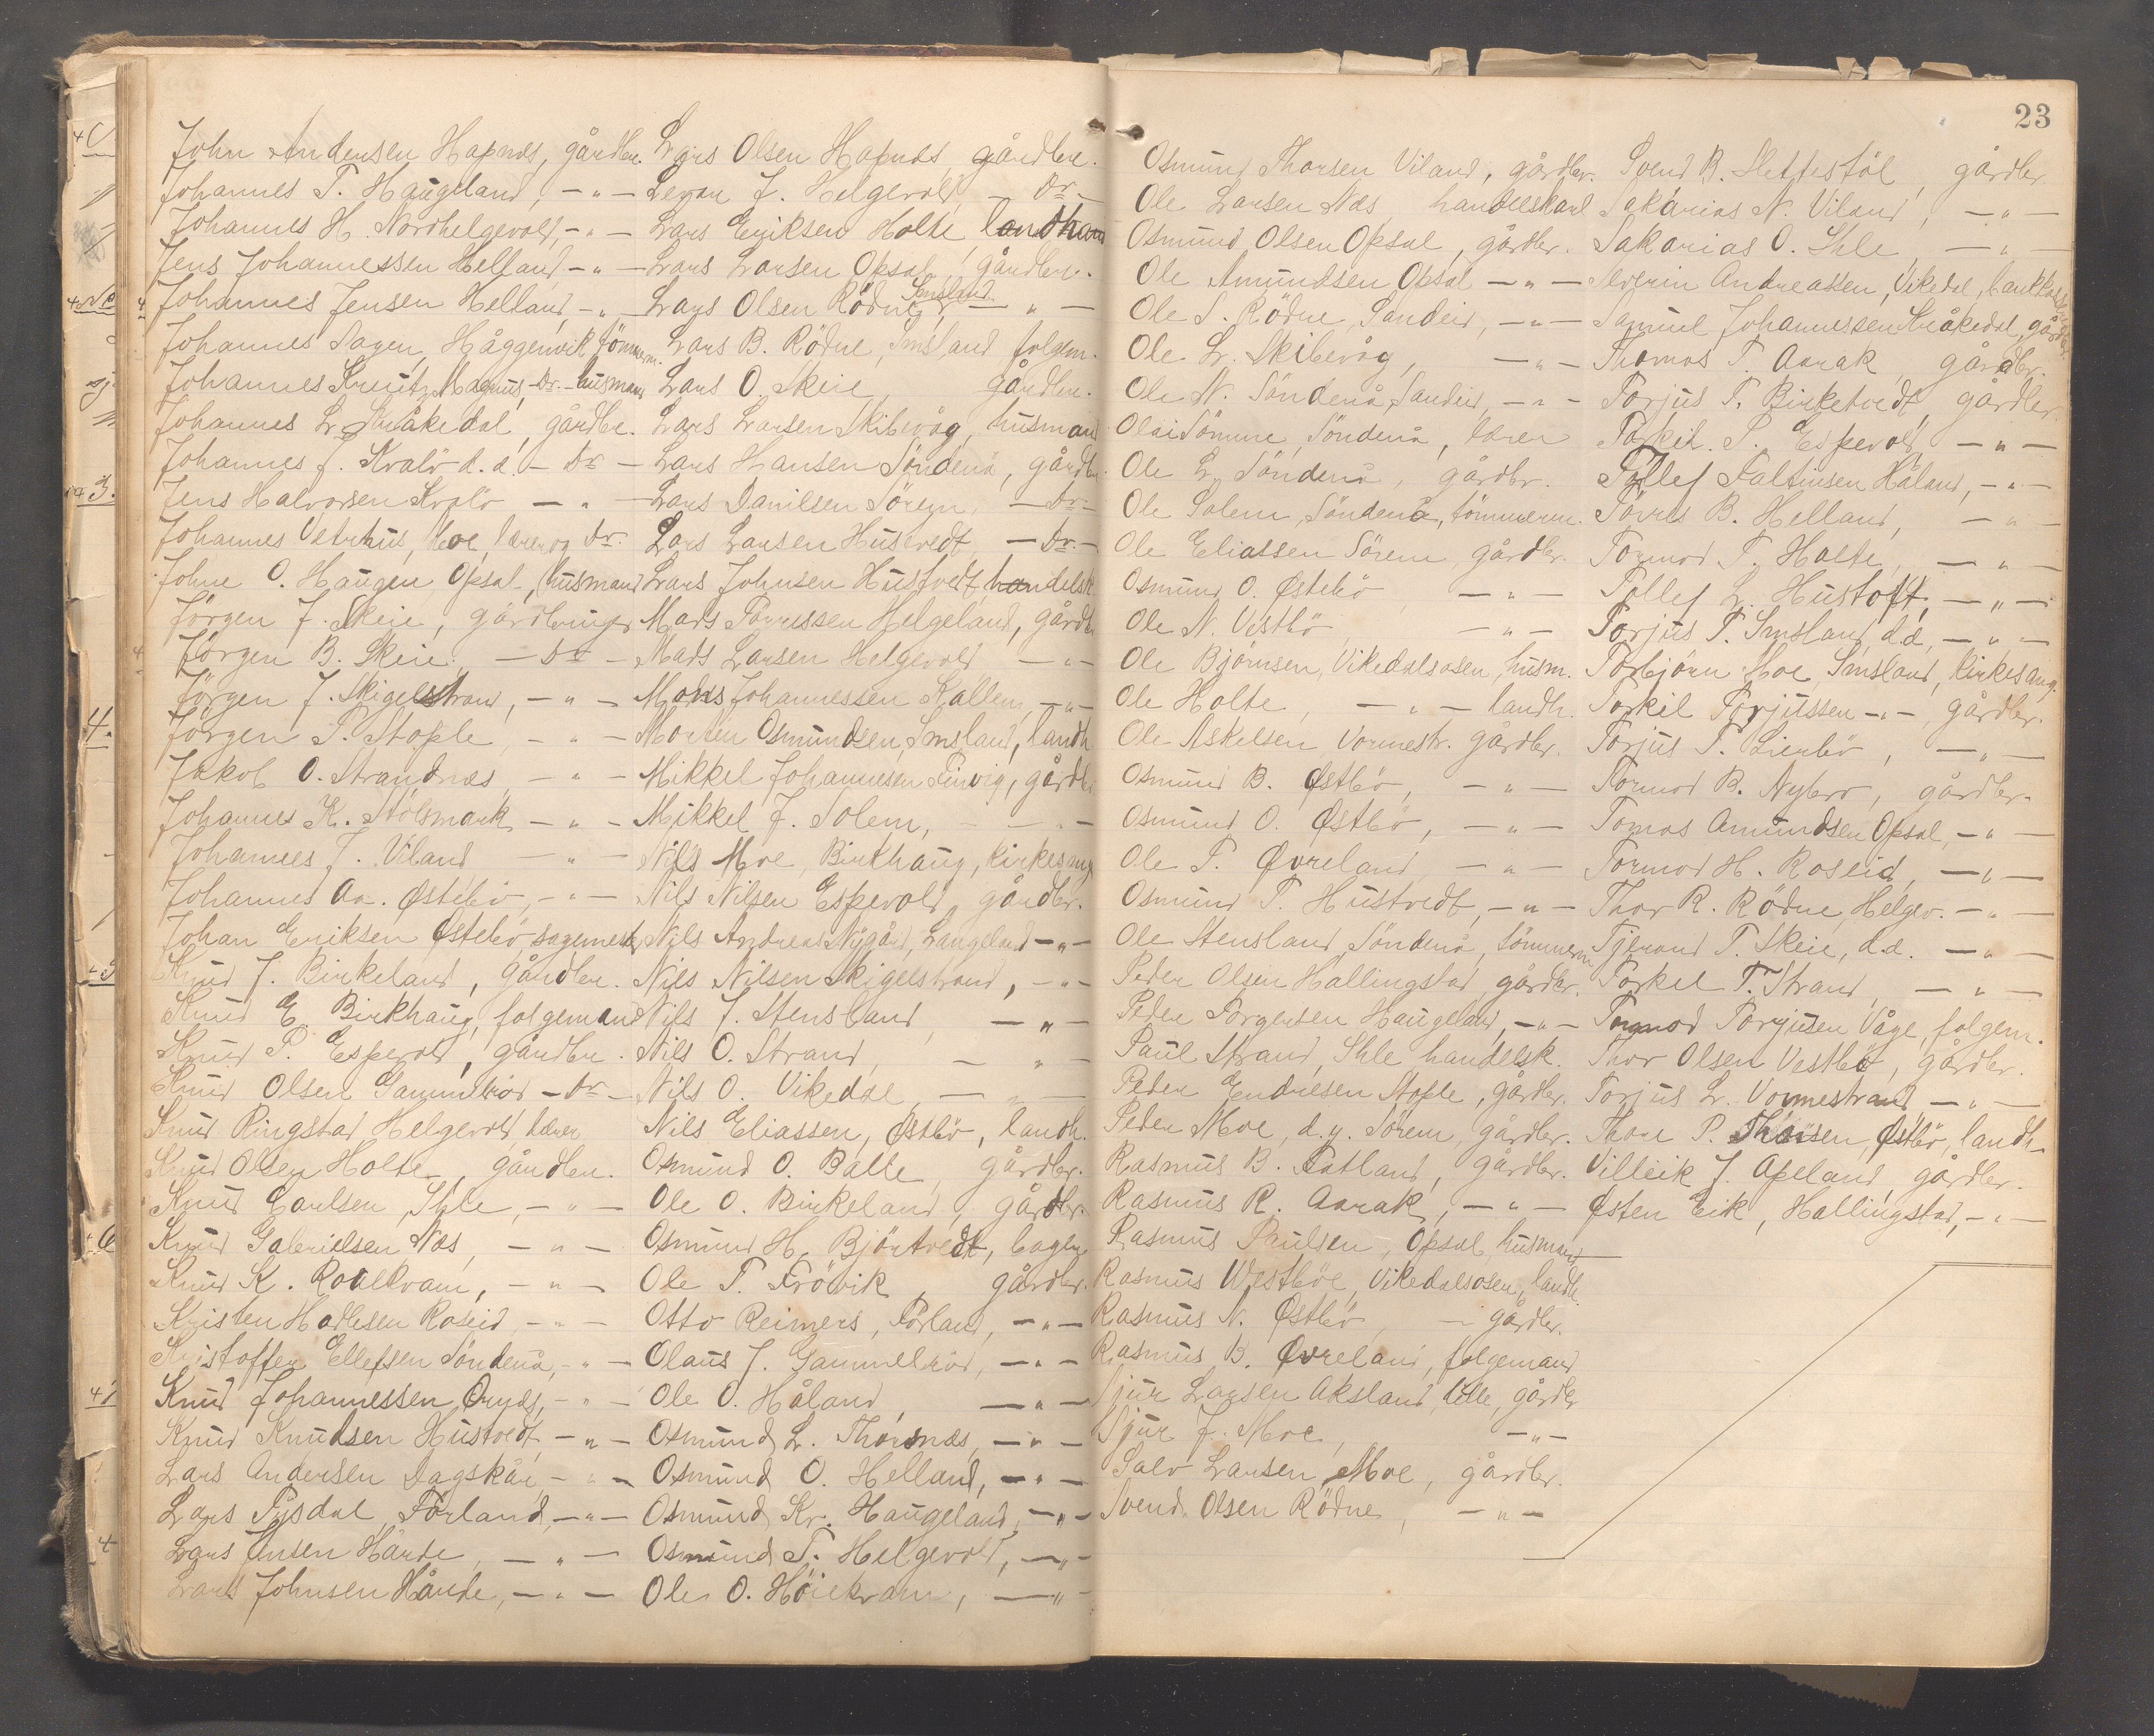 John Andersen Hapnes, gårdbr.
Johannes T. Haugeland, - " -
Johannes H. Nordhelgevold, - " -
Jens Johannessen Helland - " -
Johannes Jensen Helland, - " -
Johannes Sagen Håggenvik tömmerm.
Johannes Kreutz Magnus, - Dr. - husmand
Johannes L. Kråkedal, gårdbr.
Johannes J. Kvalö d.e. - Dr -
Jens Halvorsen Kvalö - " -
Johannes Vetrhus, Moe, lærer og Dr.
Johne O. Haugen Opsal, husmand
Jörgen J. Skeie, gårdbruger
Jörgen B. Skeie - Dr -
Jörgen J. Skigelstrand, - " -
Jörgen T. Stople, - " -
Jakob O. Strandnæs, - " -
Johannes K. Stölsmark - " -
Johannes J. Viland - " -
Johannes Aa. Østebö, - " -
Johan Eriksen Østebö sagemester
Knud J. Birkeland, gårdbr.
Knud E. Birkhaug, folgemand
Knud P. Espevold, gårdbr.
Knud Olsen Gammelröd - Dr -
Knud Ringstad Helgevold lærer
Knud Olsen Holte, gårdbr.
Knud Carlsen, Ihle, - " -
Knud Gabrielsen Næs, - " -
Knud K. Roalkvam, - " -
Kristen Hodlesen Roseid - " -
Kristoffer Ellefsen Söndenå, - " -
Knud Johannessen - " -
Knud Knudsen Hustvedt - " -
Lars Andersen Dagskår, - " -
Lars Tysdal, Förland, - " -
Lars Jensen Hårde, - " -
Lars Johnsen Hårde, - " -
Lars Olsen Hapnes gårdbr.
Levor J. Helgevold, - Dr -
Lars Eriksen Holte, landhan
Lars Larsen Opsal, gårdbr.
Lars Olsen Rödne, Imsland - " -
Lars B. Rödne, Imsland folgem.
Lars O. Skeie, gårdbr.
Lars Larsen Skibevåg, husmand
Lars Hansen Söndenå, gårdbr.
Lars Danilsen Sörem, - Dr -
Lars Larsen Hustvedt - Dr. -
Lars Johnsen Hustvedt, handelsk.
Mads Torressen Helgeland, gårdbr
Mads Larsen Helgevold - " -
Mads Johannessen Kallem, - " -
Morten Osmundsen, Imsland, landh
Mikkel Johannesen Finvig, gårdbr
Mikkel J. Solem, - " -
Nils Moe, Birkhaug, kirkesang
Nils Nilsen Espevold, gårdbr.
Nils Andreas Nygård, Langeland - " -
Nils Nilsen Skigelstrand, - " -
Nils J. Stensland, - " -
Nils O. Strand, - " -
Nils O. Vikedal, - " -
Nils Eliassen, Østbö, landh.
Osmund O. Balle, gårdbr.
Ole O. Birkeland, gårdbr.
Osmund H. Björtvedt, bager
Ole T. Frövik, gårdbr.
Otto Reimers, Förland, - " -
Olaus J. Gammelröd, - " -
Ole O. Håland, - " -
Osmund L. Thorsnæs, - " -
Osmund O. Helland, - " -
Osmund Kr. Haugeland, - " -
Osmund T. Helgevold, - " -
Ole O. Höiekvam, - " -
23
Osmund Thorsen Viland, gårdbr.
Ole Larsen Næs, handelskarl
Osmund Olsen Opsal, gårdbr.
Ole Amundsen Opsal - " -
Ole S. Rödne, Sandeid, - " -
Ole L. Skibevåg, - " -
Ole N. Söndenå Sandeid, - " -
Olai Sömme, Söndenå, lærer
Ole L. Söndenå, gårdbr.
Ole Solem, Söndenå, tömmerm.
Ole Eliassen Sörem, gårdbr.
Osmund O. Østebö, - " -
Ole N. Vestbö, - " -
Ole Björnsen, Vikedalsosen, husm.
Ole Holte, - " - landh.
Ole Askelsen Vormestr. gårdbr.
Osmund B. Østbö, - " -
Osmund O. Østbö, - " -
Ole T. Øvreland, - " -
Osmund T. Hustvedt, - " -
Ole Stensland, Söndenå, tömmerm
Peder Olsen Hallingstad gårdbr.
Peder Torgersen Haugeland, - " -
Paul Strand, Ihle handelsk.
Peder Endresen Stople, gårdbr.
Peder Moe, d.y. Sörem, gårdbr.
Rasmus B. Fatland, gårdbr.
Rasmus R. Aarak, - " -
Rasmus Paulsen, Opsal, husmand
Rasmus Westböe, Vikedalsosen, landh.
Rasmus N. Østbö, - gårdbr.
Rasmus B. Øvreland, folgemand
Sjur Larsen Aksland, lille, gårdbr
Sjur J. Moe, - " -
Salv Larsen Moe, gårdbr.
Svend Olsen Rödne, - " -
Svend B. Slettestöl, gårdbr.
Sakarias N. Viland, - " -
Sakarias O. Ihle, - " -
Severin Andreassen, Vikedal,
Samuel Johannessen Kråkedal, gårdbr.
Thomas T. Aarak, gårdbr.
Torjus T. Birketvedt, gårdbr.
Torkil P. Espevold, - " -
Tollef Faltinsen Håland, - " -
Torres B. Helland, - " -
Tormod T. Holte, - " -
Tollef L. Hustoft, - " -
Torjus T. Imsland, d.e., - " -
Torbjörn Moe, Imsland, kirkesang.
Torkil Torjussen - " -, gårdbr.
Torjus T. Lierbö, - " -
Tormod B. Nybro, gårdbr.
Tomas Amundsen Opsal, - " -
Tormod H. Roseid, - " -
Thor R. Rödne, Helgev. - " -
Tjerand T. Skeie, d.e. - " -
Torkel T. Strand, - " -
Tormod Torjusen Våge, folgem.
Thor Olsen Vestbö, gårdbr.
Torjus L. Vormestrand - " -
Thore P. Thorsen, Østbö, landh.
Villeik J. Apeland, gårdbr.
Østen Eik, Hallingstad, - " -